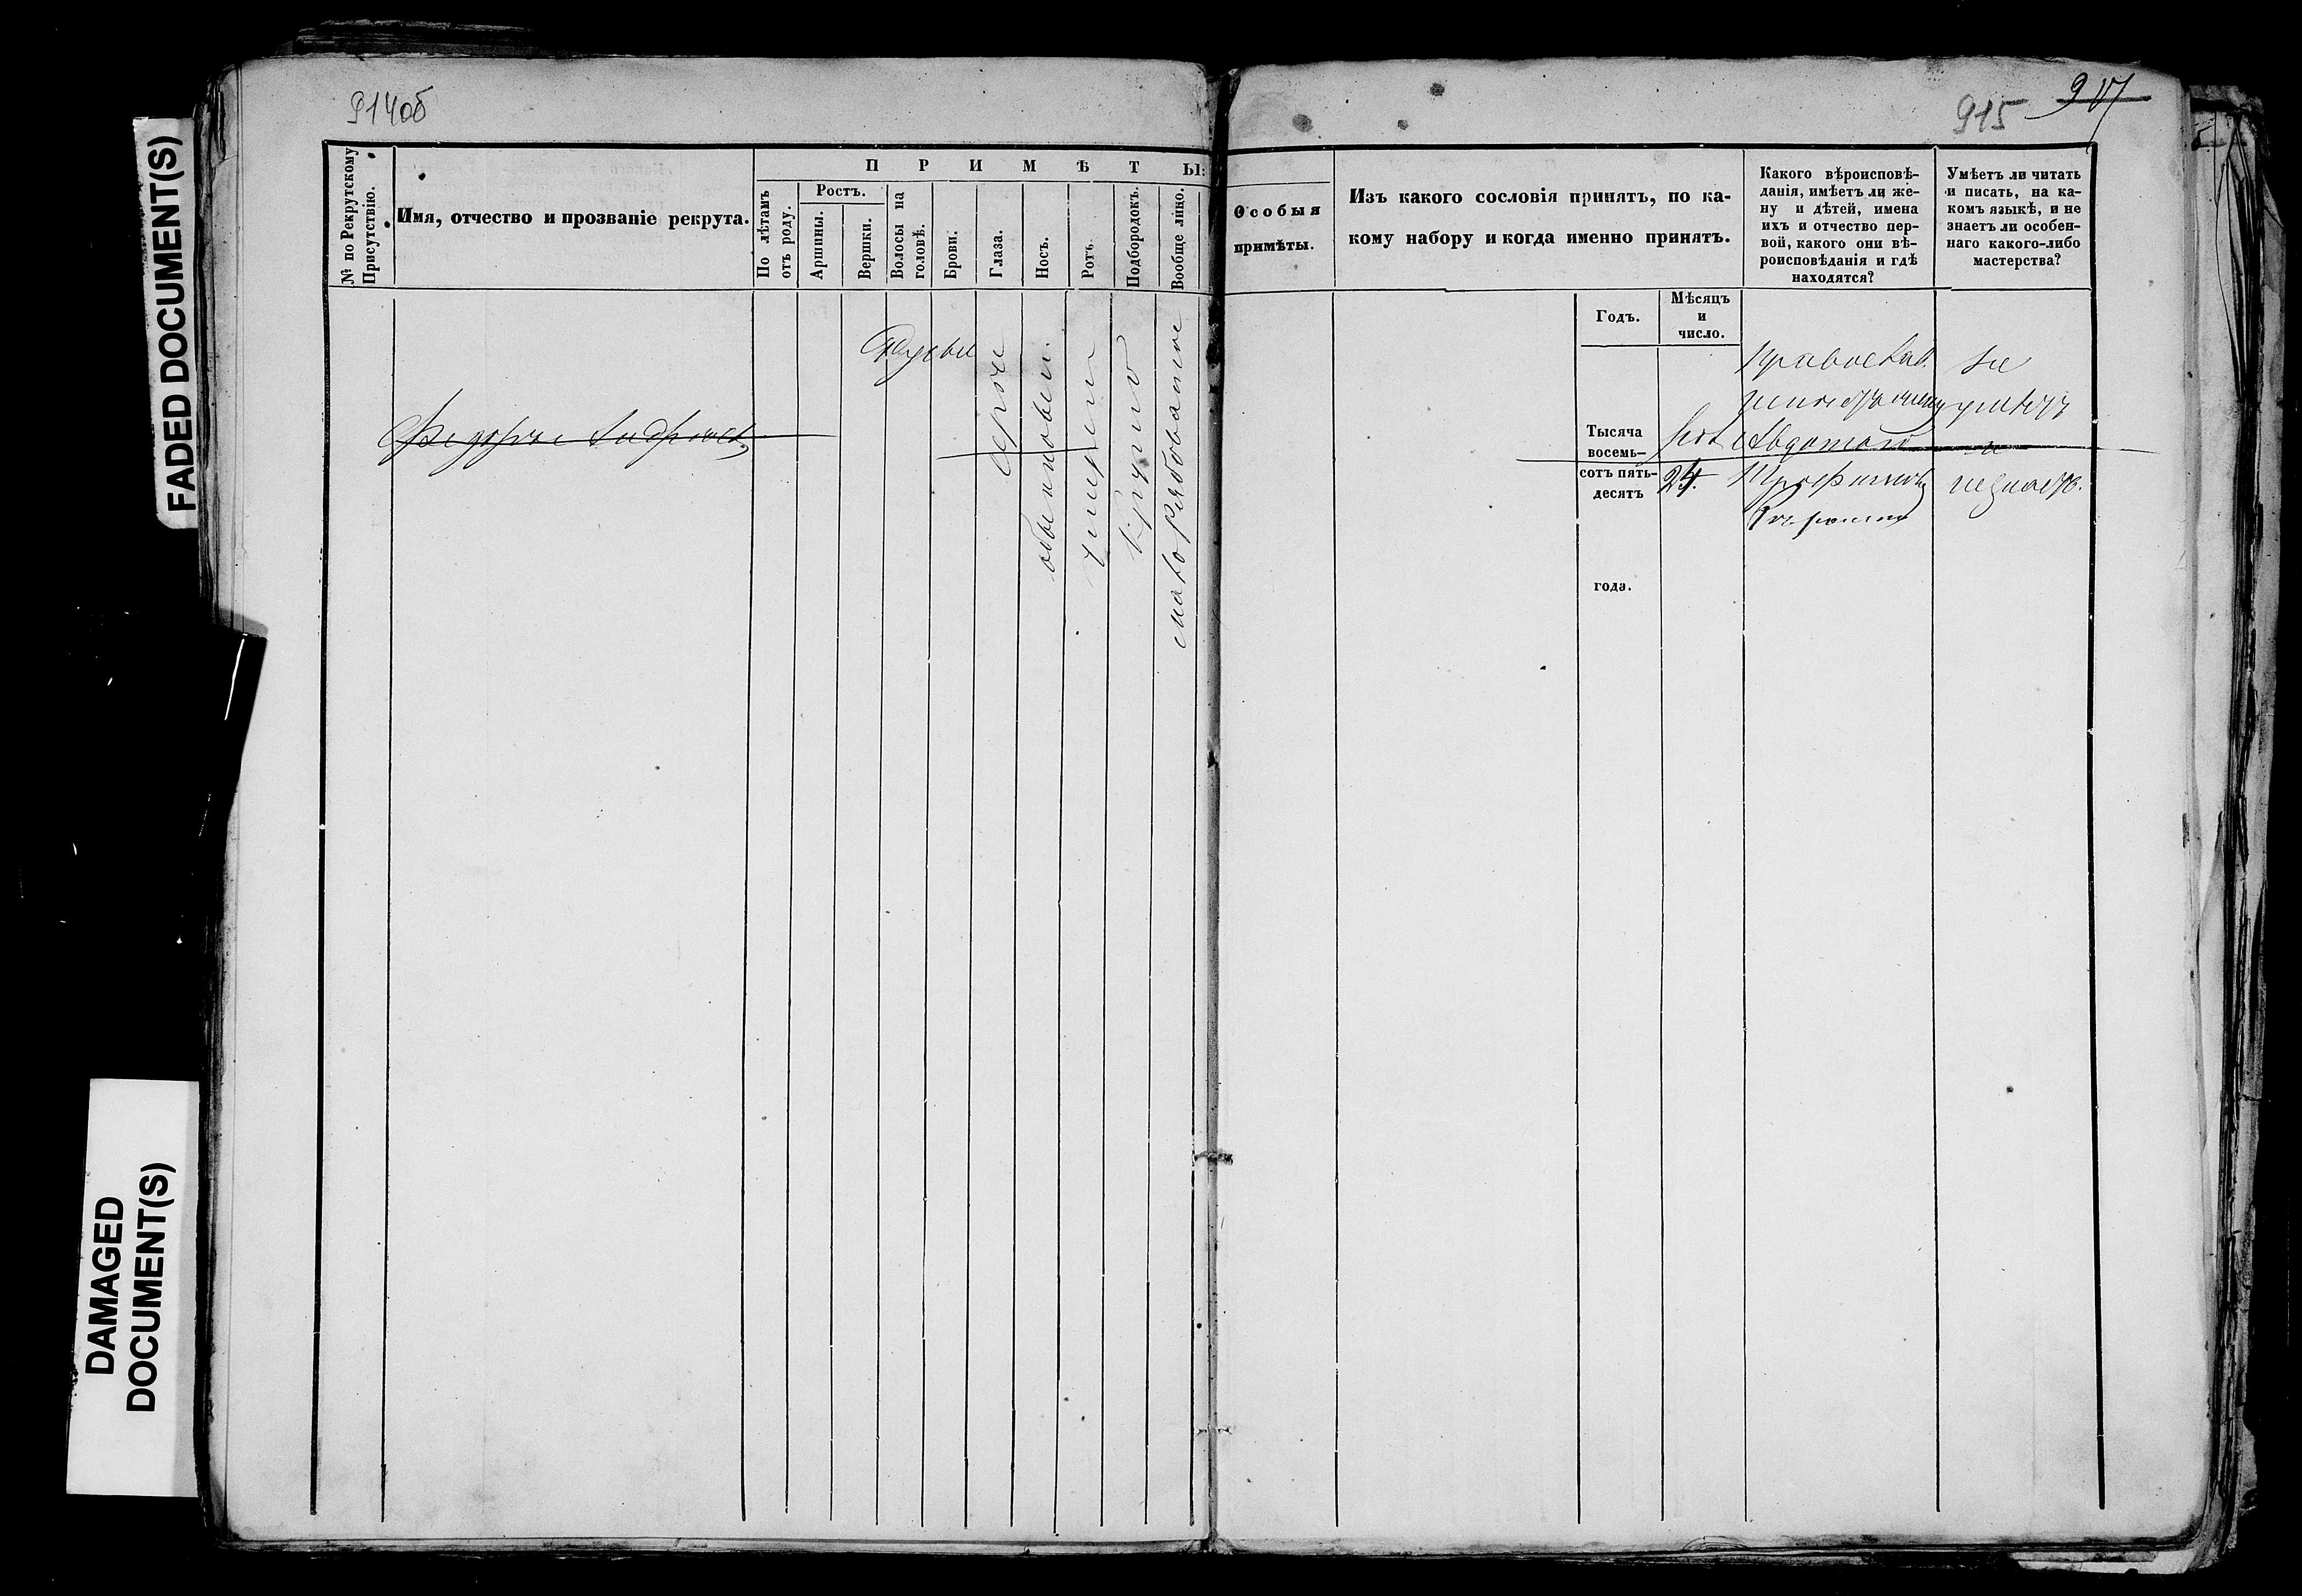 FADED DOCUMENT(S)
DAMAGED
DOCUMENT(S)
914об
№ по Рекрутскому
Присутствію.
Имя, отчество и прозваніе рекрута.
ПРИМѢТЫ:
По лѣтамъ
отъ роду.
Ростъ.
Аршины.
Вершки.
Волосы на
головѣ.
Брови.
Глаза.
Носъ.
Ротъ.
Подбородокъ.
Вообще лицо.
Русые
серые
обыкновен.
умерен
круглъ
малорябоватое
915
917
Особыя
примѣты.
Изъ какого сословія принятъ, по ка-
кому набору и когда именно принятъ.
Какого вѣроисповѣ-
данія, имѣетъ ли же-
ну и дѣтей, имена
ихъ и отчество пер-
вой, какого они вѣ-
роисповѣданія и гдѣ
находятся?
Умѣетъ ли читать
и писать, на ка-
комъ языкѣ, и не
знаетъ ли особен-
наго какого-либо
мастерства?
Годъ.
Мѣсяцъ
и
число.
Тысяча
восемь-
сотъ пять-
десятъ
года.
24.
православ.
не
умѣетъ
и
незнаетъ.